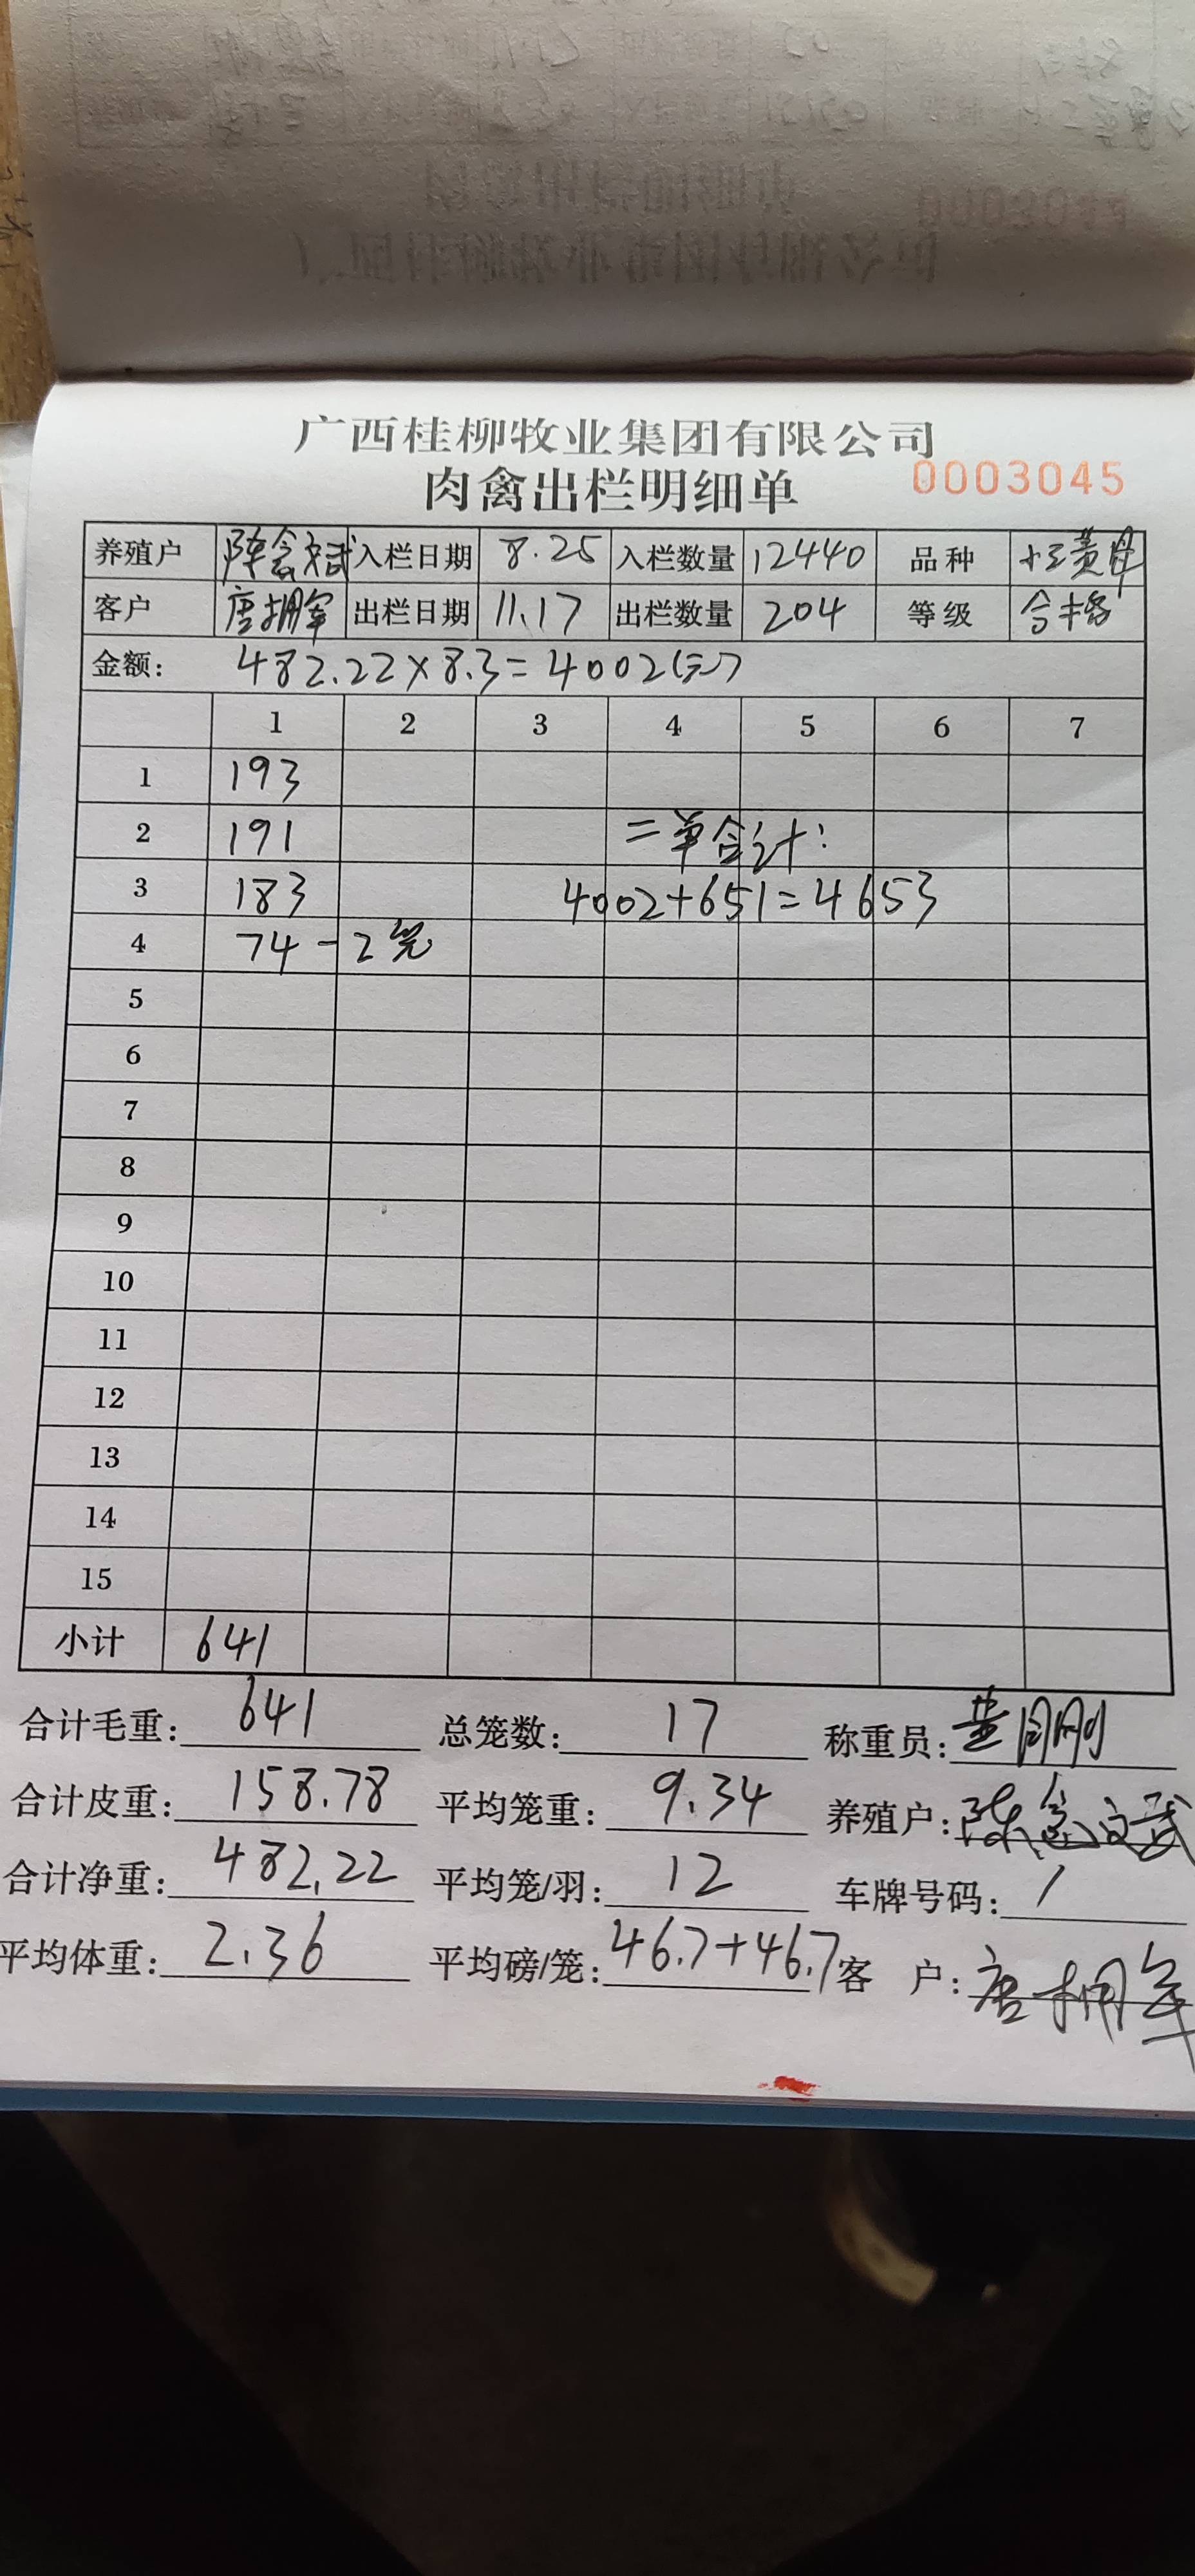 广西桂柳牧业集团有限公司
肉禽出栏明细单 0003045
养殖户 陈念文武 入栏日期 8.25 入栏数量 12440 品种 黄
客户 唐拥军 出栏日期 11.17 出栏数量 204 等级 合格
金额: 482.22×8.3=4002(元)
1 2 3 4 5 6 7
1 193
2 191 二单合计:
3 183 4002+651=4653
4 74-2笼
5
6
7
8
9
10
11
12
13
14
15
小计 641
合计毛重: 641 总笼数: 17 称重员:
合计皮重: 158.78 平均笼重: 9.34 养殖户: 陈念文武
合计净重: 482.22 平均笼/羽: 12 车牌号码: /
平均体重: 2.36 平均磅/笼: 46.7+46.7 客 户: 唐拥军